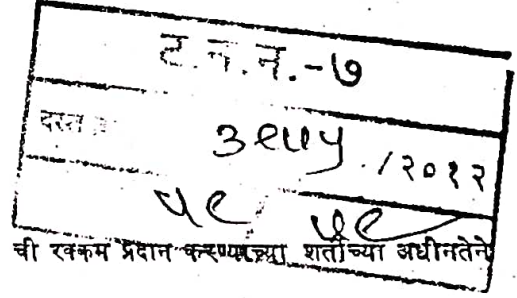 ट.न.न.-७
दस्त
३९५५ /२०१२
५८ ५९
ची रक्कम प्रदान करण्याच्या शर्तीच्या अधीनतेने